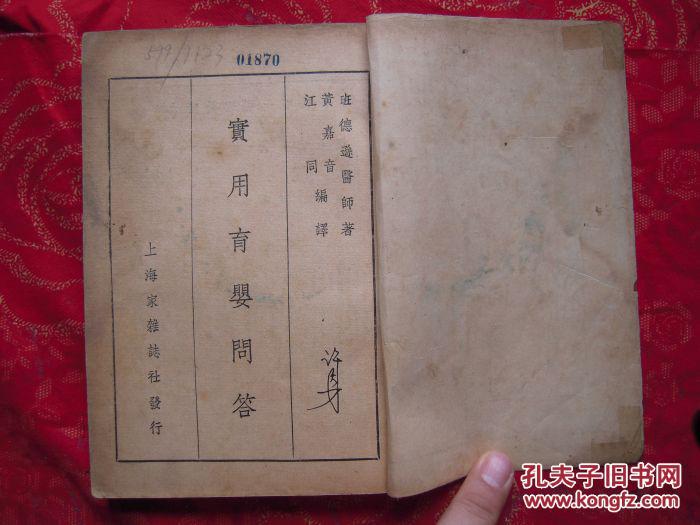 599/1123
01870
班德遜醫師著
黃嘉音
江同編譯
實用育嬰問答
上海家雜誌社發行
孔夫子旧书网
www.kongfz.com